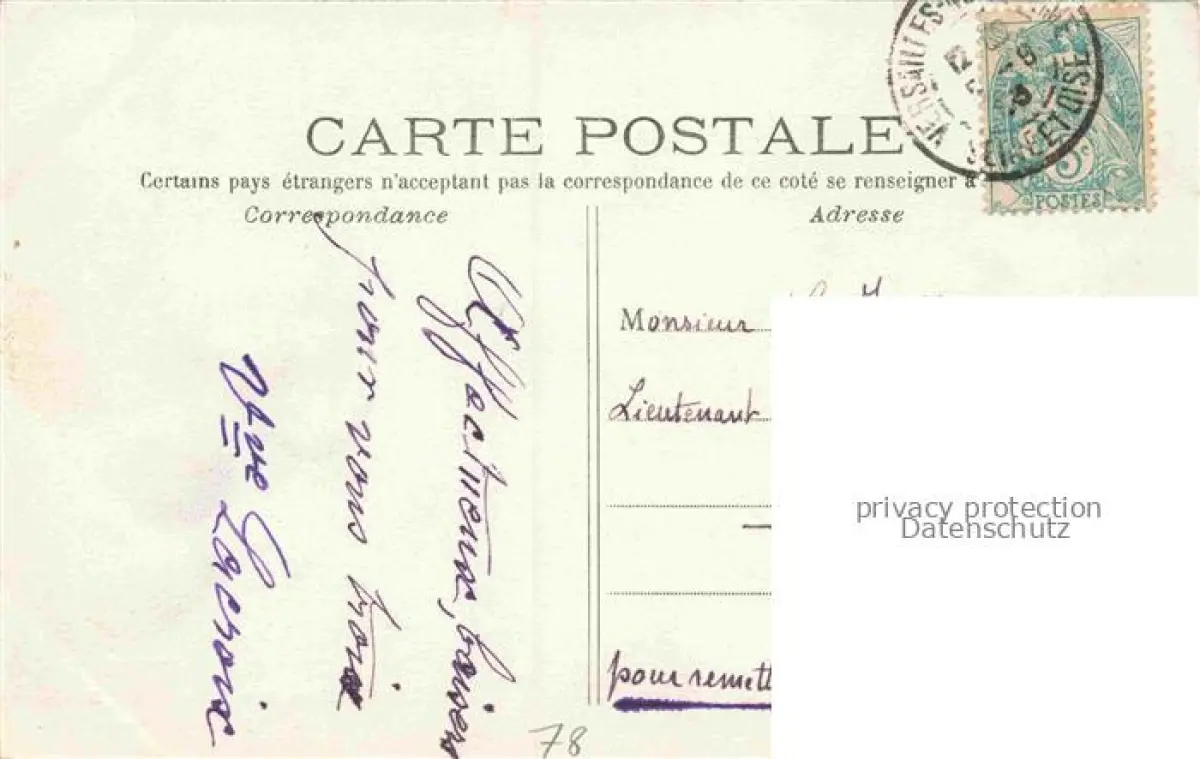 CARTE POSTALE
Certains pays étrangers n'acceptant pas la correspondance de ce coté se renseigner à
Correspondance
Adresse
Affectueux baisers
pour vous trois
Vve
VERSAILLES
SEINE-ET-OISE
5c
POSTES
Monsieur
Lieutenant
pour remett
privacy protection
Datenschutz
78